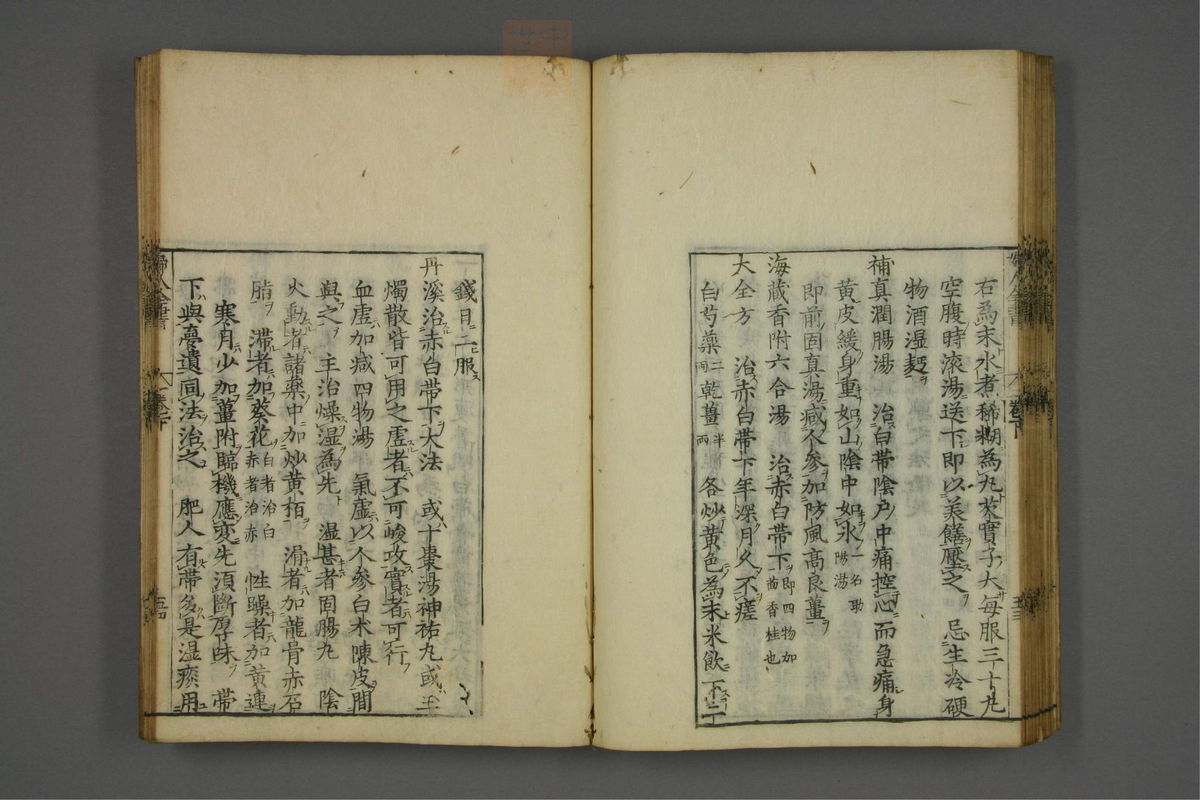 右為末水煮稀糊為丸芡實子大毎服三十丸
空腹時滚湯送下即以美饍壓之　忌生冷硬
物酒湿麪
補真潤腸湯　治白帯陰户中痛控心而急痛身
黄皮緩身重如山陰中如氷一名助陽湯
即前固真湯减人參加防風髙良薑
海蔵香附六合湯　治赤白帯下即四物加茴香桂也
大全方　治赤白帯下年深月久不瘥
白芍藥二両乾薑半両各炒黄色為末米飲下二
錢日二服
丹溪治赤白帯下大法　或十棗湯神祐丸或玉
燭散皆可用之虚者不可峻攻實者可行
血虚加减四物湯　氣虚以人参白朮陳皮間
與之　主治燥湿為先　湿甚者固腸丸　陰
火動者諸藥中加炒黄栢　滑者加龍骨赤石
脂　滞者加葵花白者治白赤者治赤　性躁者加黄連
寒月少加薑附臨機應変先湏斷厚味　帯
下與夢遺同法治之　肥人有帯多是湿痰用
婦人全書
巻下
五三
婦人全書
巻下
五四